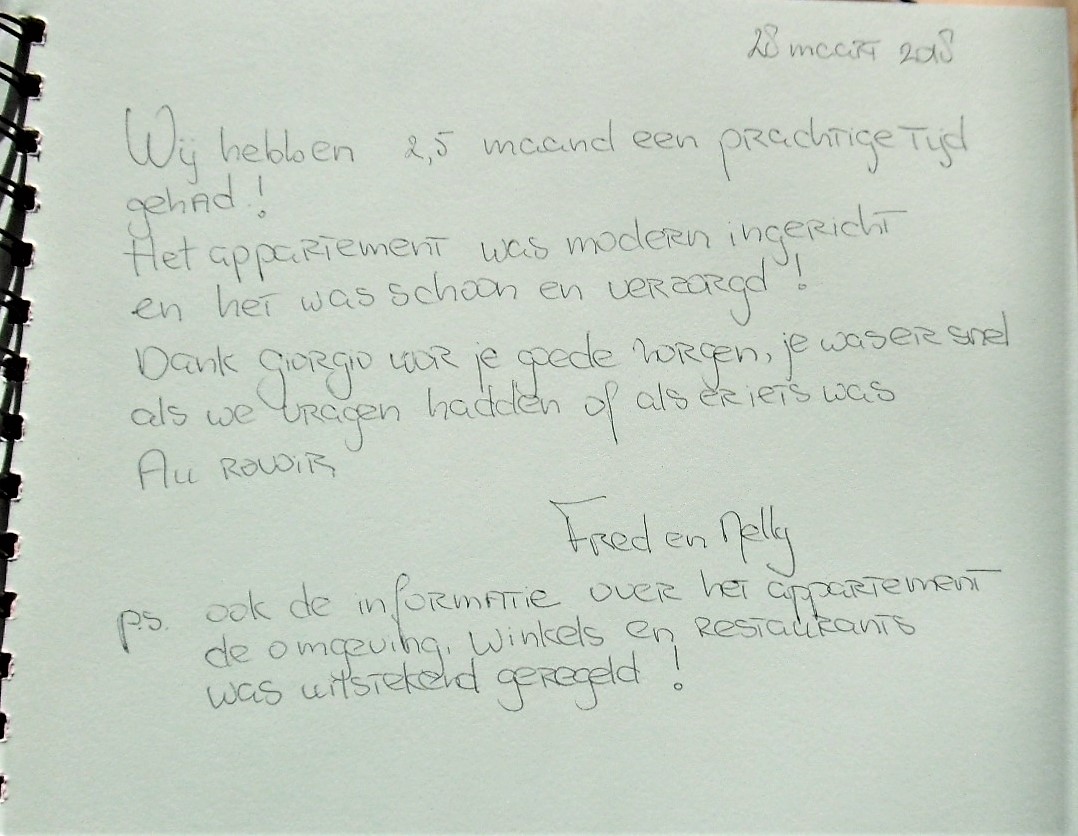 28 maart 2018
Wij hebben 2,5 maand een prachtige tijd
gehad!
Het appartement was modern ingericht
en het was schoon en verzorgd!
Dank Giorgio voor je goede zorgen, je was er snel
als we vragen hadden of als er iets was
Au rovoir
Fred en Nelly
p.s. ook de informatie over het appartement
de omgeving, winkels en restaurants
was uitstekend geregeld!